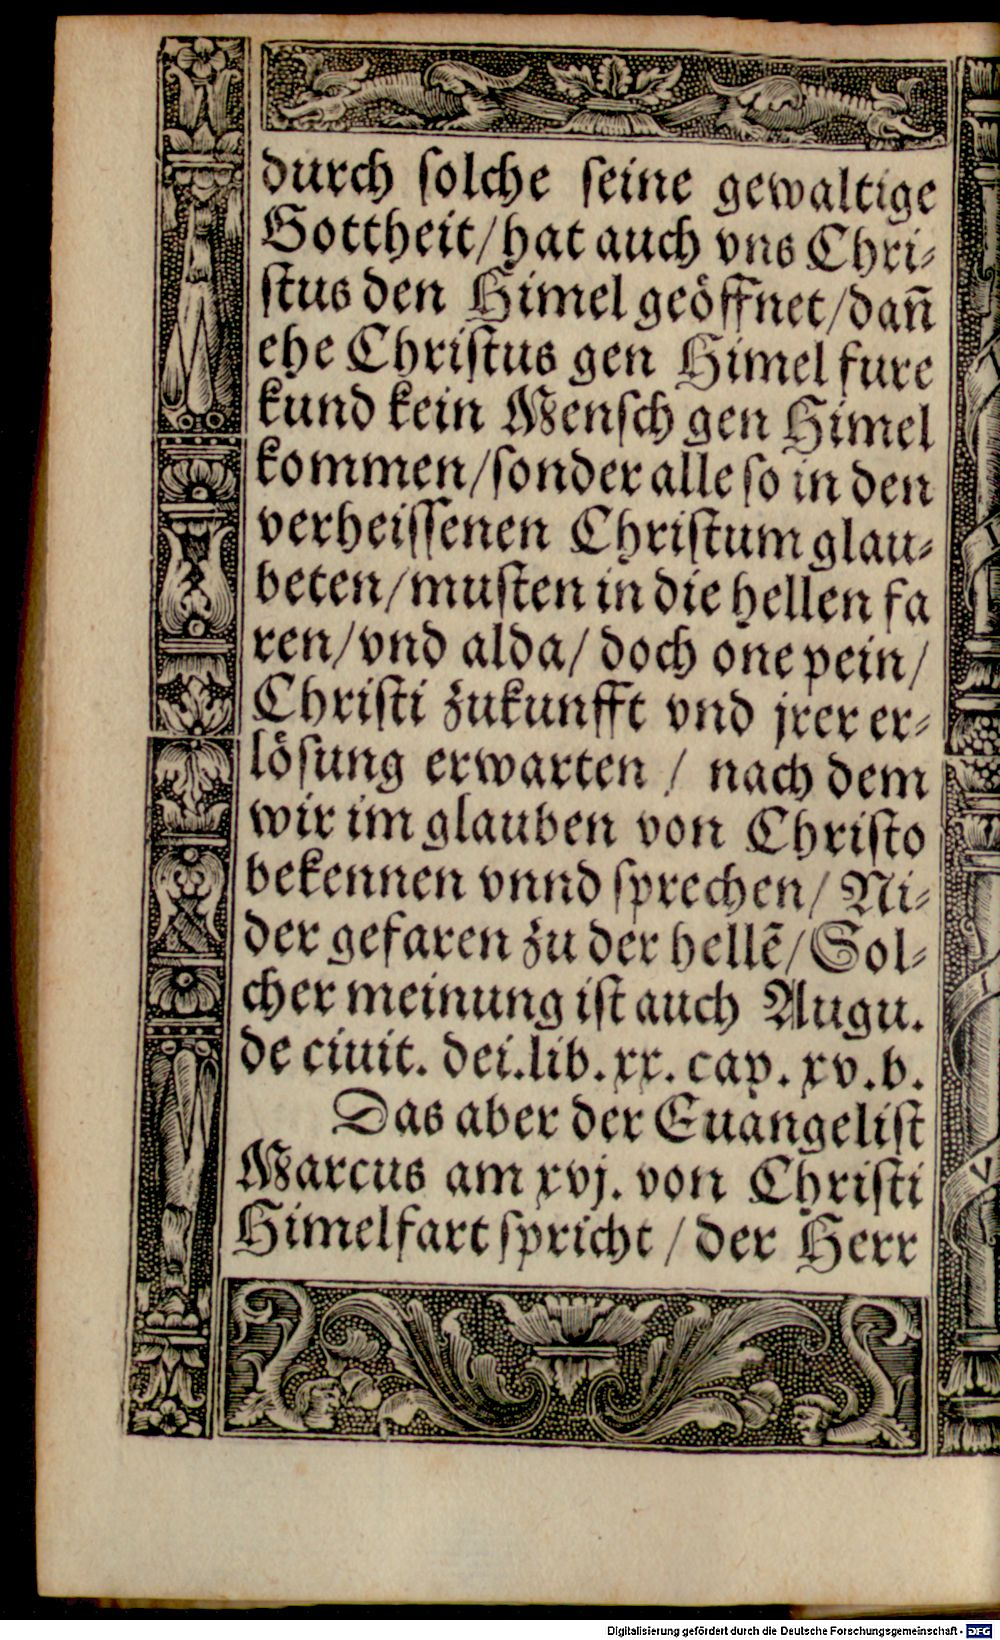 durch solche seine gewaltige
Gottheit/hat auch vns Chri⸗
stus den Himel geöffnet/dan̄
ehe Christus gen Himel fure
kund kein Mensch gen Himel
kommen/sonder alle so in den
verheissenen Christum glau⸗
beten/musten in die hellen fa
ren/vnd alda/ doch one pein/
Christi zukunfft vnd jrer er⸗
lösung erwarten / nach dem
wir im glauben von Christo
bekennen vnnd sprechen/ Ni⸗
der gefaren zu der hellē/Sol⸗
cher meinung ist auch Augu.
de ciuit. dei.lib.xx. cap. xv.b.
Das aber der Euangelist
Marcus am xvj. von Christi
Himelfart spricht / der Herr
Digitalisierung gefördert durch die Deutsche Forschungsgemeinschaft - DFG